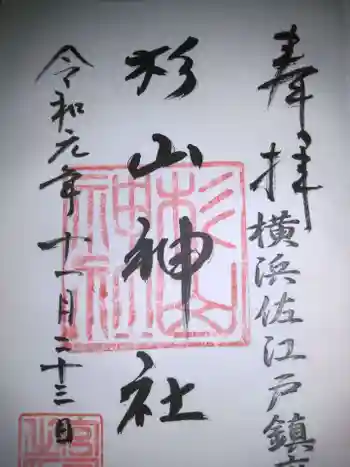 奉拝
横浜佐江戸鎮
杉山神社
杉山神社
令和元年十一月二十三日